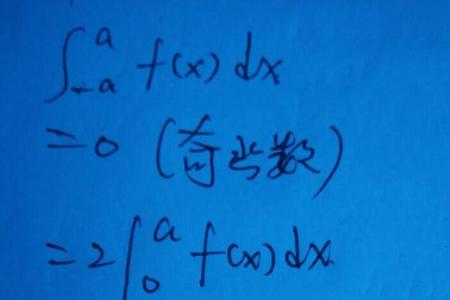 ∫_{-a}^{a} f(x) dx
=0 (奇函数)
=2∫_{0}^{a} f(x) dx